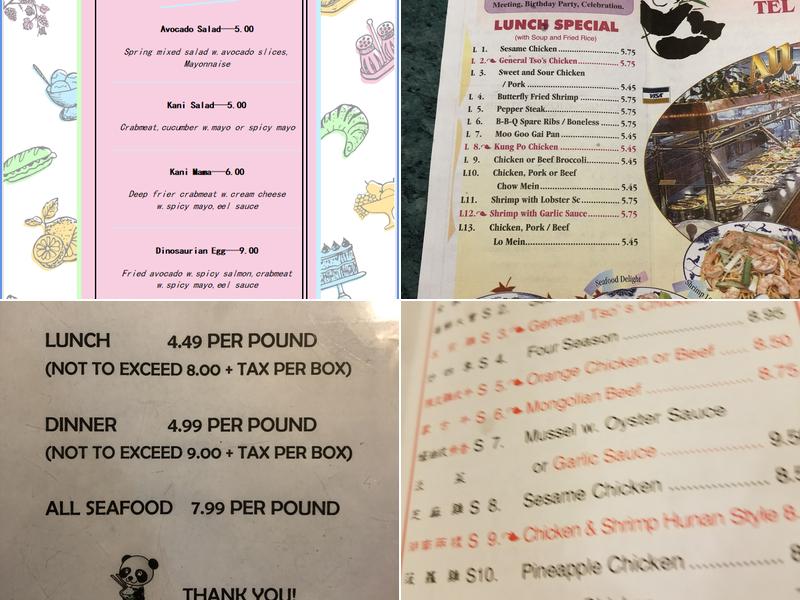 Avocado Salad——5.00
Spring mixed salad w.avocado slices,
Mayonnaise
Kani Salad——5.00
Crabmeat,cucumber w.mayo or spicy mayo
Kani Mama——6.00
Deep frier crabmeat w.cream cheese
w.spicy mayo,eel sauce
Dinosaurian Egg——9.00
Fried avocado w.spicy salmon,crabmeat
w.spicy mayo,eel sauce
Meeting, Bigthday Party, Celebration.
TEL
LUNCH SPECIAL
(with Soup and Fried Rice)
L 1. Sesame Chicken 5.75
L 2. General Tso's Chicken 5.75
L 3. Sweet and Sour Chicken
/ Pork 5.45
L 4. Butterfly Fried Shrimp 5.75
L 5. Pepper Steak 5.75
L 6. B-B-Q Spare Ribs / Boneless 5.75
L 7. Moo Goo Gai Pan 5.45
L 8. Kung Po Chicken 5.45
L 9. Chicken or Beef Broccoli 5.45
L10. Chicken, Pork or Beef
Chow Mein 5.45
L11. Shrimp with Lobster Sc 5.75
L12. Shrimp with Garlic Sauce 5.75
L13. Chicken, Pork / Beef
Lo Mein 5.45
VISA
All
Seafood Delight
LUNCH 4.49 PER POUND
(NOT TO EXCEED 8.00 + TAX PER BOX)
DINNER 4.99 PER POUND
(NOT TO EXCEED 9.00 + TAX PER BOX)
ALL SEAFOOD 7.99 PER POUND
THANK YOU!
S 2.
S 3. General Tso's 8.95
S 4. Four Season 8.50
S 5. Orange Chicken or Beef 8.75
S 6. Mongolian Beef
S 7. Mussel w. Oyster Sauce
or Garlic Sauce
芝 麻 雞 S 8. Sesame Chicken
S 9. Chicken & Shrimp Hunan Style
菠 蘿 雞 S10. Pineapple Chicken